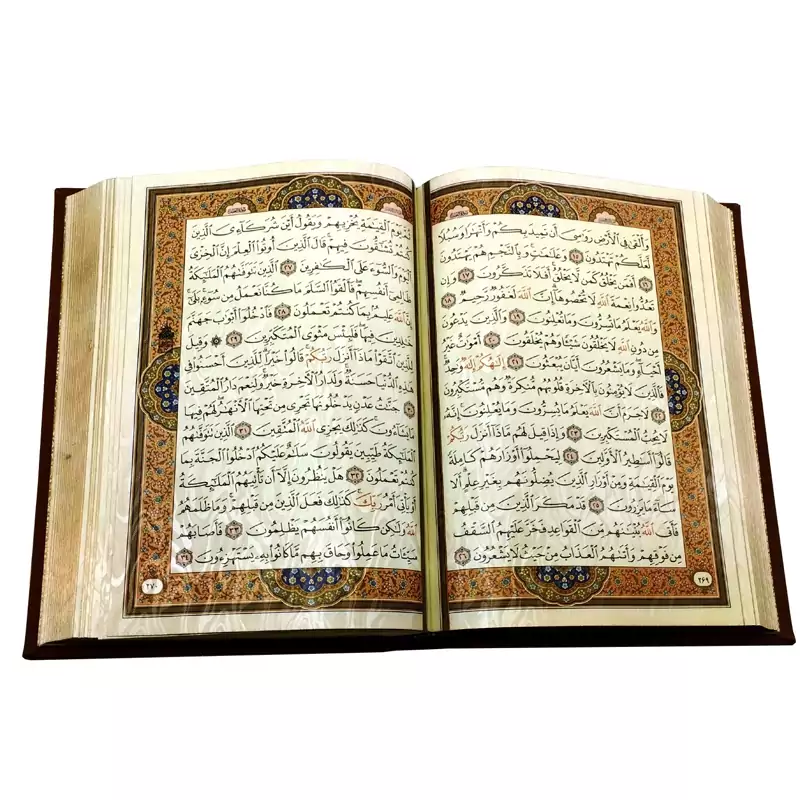 وَأَلْقَىٰ فِي الْأَرْضِ رَوَاسِيَ أَن تَمِيدَ بِكُمْ وَأَنْهَارًا وَسُبُلًا
لَّعَلَّكُمْ تَهْتَدُونَ ١٥ وَعَلَامَاتٍ وَبِالنَّجْمِ هُمْ يَهْتَدُونَ
١٦ أَفَمَن يَخْلُقُ كَمَن لَّا يَخْلُقُ أَفَلَا تَذَكَّرُونَ ١٧ وَإِن
تَعُدُّوا نِعْمَةَ اللَّهِ لَا تُحْصُوهَا إِنَّ اللَّهَ لَغَفُورٌ رَّحِيمٌ ١٨
وَاللَّهُ يَعْلَمُ مَا تُسِرُّونَ وَمَا تُعْلِنُونَ ١٩ وَالَّذِينَ يَدْعُونَ
مِن دُونِ اللَّهِ لَا يَخْلُقُونَ شَيْئًا وَهُمْ يُخْلَقُونَ ٢٠ أَمْوَاتٌ غَيْرُ
أَحْيَاءٍ وَمَا يَشْعُرُونَ أَيَّانَ يُبْعَثُونَ ٢١ إِلَٰهُكُمْ إِلَٰهٌ وَاحِدٌ
فَالَّذِينَ لَا يُؤْمِنُونَ بِالْآخِرَةِ قُلُوبُهُم مُّنكِرَةٌ وَهُم مُّسْتَكْبِرُونَ
٢٢ لَا جَرَمَ أَنَّ اللَّهَ يَعْلَمُ مَا يُسِرُّونَ وَمَا يُعْلِنُونَ إِنَّهُ
لَا يُحِبُّ الْمُسْتَكْبِرِينَ ٢٣ وَإِذَا قِيلَ لَهُم مَّاذَا أَنزَلَ رَبُّكُمْ
قَالُوا أَسَاطِيرُ الْأَوَّلِينَ ٢٤ لِيَحْمِلُوا أَوْزَارَهُمْ كَامِلَةً
يَوْمَ الْقِيَامَةِ وَمِنْ أَوْزَارِ الَّذِينَ يُضِلُّونَهُم بِغَيْرِ عِلْمٍ أَلَا
سَاءَ مَا يَزِرُونَ ٢٥ قَدْ مَكَرَ الَّذِينَ مِن قَبْلِهِمْ
فَأَتَى اللَّهُ بُنْيَانَهُم مِّنَ الْقَوَاعِدِ فَخَرَّ عَلَيْهِمُ السَّقْفُ
مِن فَوْقِهِمْ وَأَتَاهُمُ الْعَذَابُ مِنْ حَيْثُ لَا يَشْعُرُونَ ٢٦
٢٦٩
ثُمَّ يَوْمَ الْقِيَامَةِ يُخْزِيهِمْ وَيَقُولُ أَيْنَ شُرَكَائِيَ الَّذِينَ
كُنتُمْ تُشَاقُّونَ فِيهِمْ قَالَ الَّذِينَ أُوتُوا الْعِلْمَ إِنَّ الْخِزْيَ
الْيَوْمَ وَالسُّوءَ عَلَى الْكَافِرِينَ ٢٧ الَّذِينَ تَتَوَفَّاهُمُ الْمَلَائِكَةُ
ظَالِمِي أَنفُسِهِمْ فَأَلْقَوُا السَّلَمَ مَا كُنَّا نَعْمَلُ مِن سُوءٍ بَلَىٰ
إِنَّ اللَّهَ عَلِيمٌ بِمَا كُنتُمْ تَعْمَلُونَ ٢٨ فَادْخُلُوا أَبْوَابَ جَهَنَّمَ
خَالِدِينَ فِيهَا فَلَبِئْسَ مَثْوَى الْمُتَكَبِّرِينَ ٢٩ وَقِيلَ
لِلَّذِينَ اتَّقَوْا مَاذَا أَنزَلَ رَبُّكُمْ قَالُوا خَيْرًا لِّلَّذِينَ أَحْسَنُوا فِي
هَٰذِهِ الدُّنْيَا حَسَنَةٌ وَلَدَارُ الْآخِرَةِ خَيْرٌ وَلَنِعْمَ دَارُ الْمُتَّقِينَ
٣٠ جَنَّاتُ عَدْنٍ يَدْخُلُونَهَا تَجْرِي مِن تَحْتِهَا الْأَنْهَارُ لَهُمْ فِيهَا
مَا يَشَاءُونَ كَذَٰلِكَ يَجْزِي اللَّهُ الْمُتَّقِينَ ٣١ الَّذِينَ تَتَوَفَّاهُمُ
الْمَلَائِكَةُ طَيِّبِينَ يَقُولُونَ سَلَامٌ عَلَيْكُمُ ادْخُلُوا الْجَنَّةَ بِمَا
كُنتُمْ تَعْمَلُونَ ٣٢ هَلْ يَنظُرُونَ إِلَّا أَن تَأْتِيَهُمُ الْمَلَائِكَةُ
أَوْ يَأْتِيَ أَمْرُ رَبِّكَ كَذَٰلِكَ فَعَلَ الَّذِينَ مِن قَبْلِهِمْ وَمَا ظَلَمَهُمُ
اللَّهُ وَلَٰكِن كَانُوا أَنفُسَهُمْ يَظْلِمُونَ ٣٣ فَأَصَابَهُمْ
سَيِّئَاتُ مَا عَمِلُوا وَحَاقَ بِهِم مَّا كَانُوا بِهِ يَسْتَهْزِئُونَ ٣٤
٢٧٠